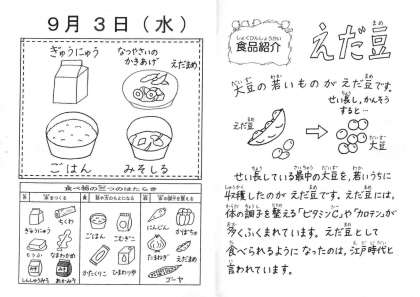 9月3日（水）
ぎゅうにゅう
なつやさいの
かきあげ
えだまめ
ごはん
みそしる
食べ物の三つのはたらき
ぎゅうにゅう
ちくわ
とうふ
なまわかめ
しろみそ
あかみそ
ごはん
こむぎこ
かたくりこ
ひまわり油
にんじん
かぼちゃ
たまねぎ
えだまめ
ゴーヤ
しょくひんしょうかい
食品紹介
えだ豆
大豆の若いものが えだ豆です。
せい長し、かんそう
すると…
えだ豆
大豆
せい長している最中の大豆を、若いうちに
収穫したのが えだ豆です。えだ豆には、
体の調子を整える「ビタミンC」や「カロテン」が
多くふくまれています。えだ豆として
食べられるようになったのは、江戸時代と
言われています。